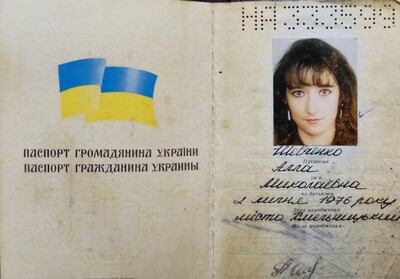 ПАСПОРТ ГРОМАДЯНИНА УКРАЇНИ
ПАСПОРТ ГРАЖДАНИНА УКРАИНЫ
НА 333599
Шевченко
Прізвище
Алла
Ім'я
Миколаївна
по батькові
2 липня 1976 року
Дата народження
місто Хмельницький
Місце народження